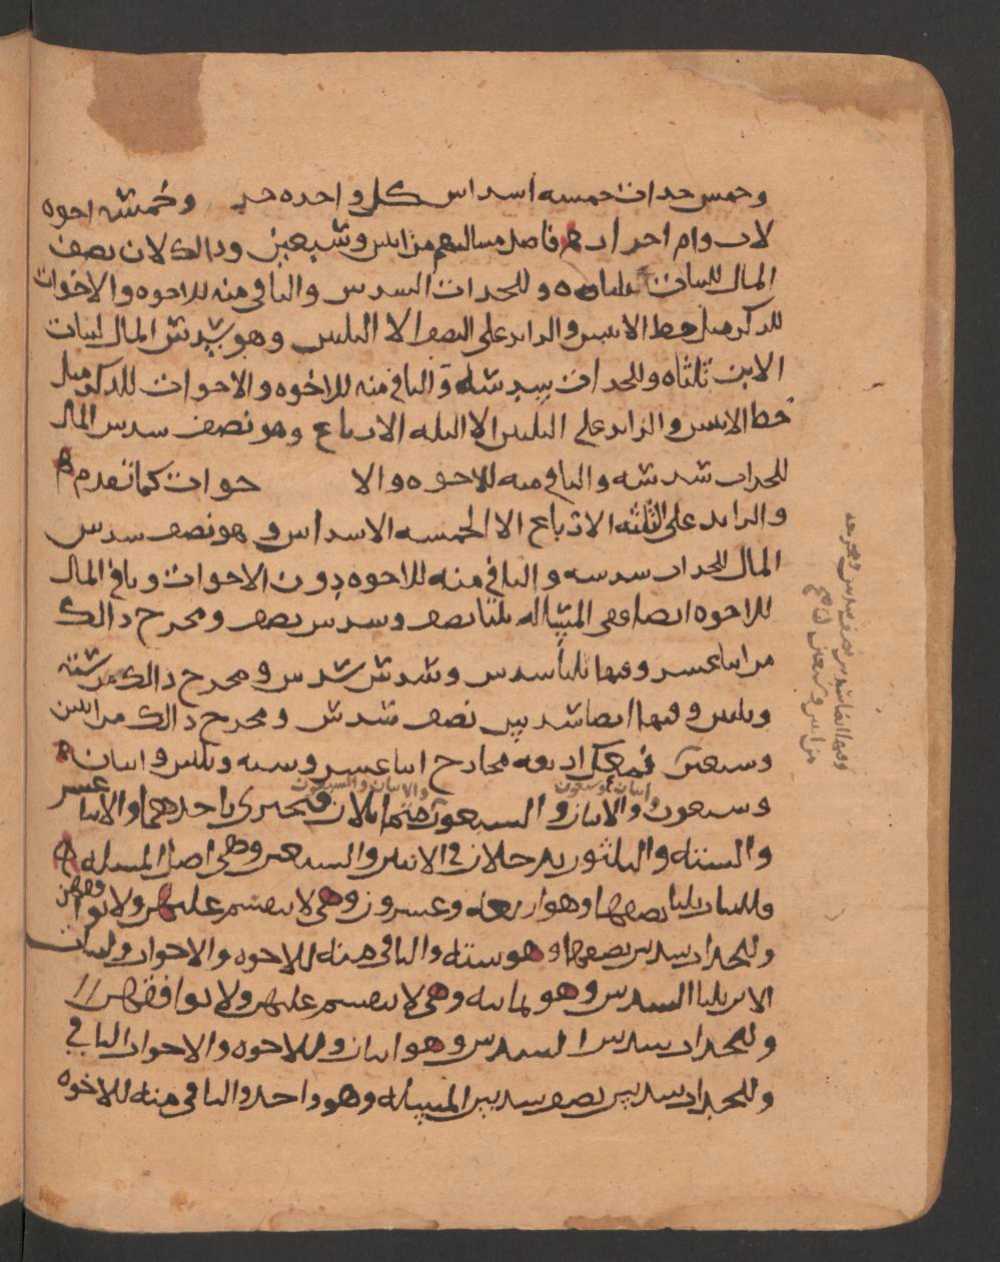 وخمس جدات خمسة اسداس كل واحده وخمسة اخوه
لاب وام احرار فاصل مسالتهم من اثنين وسبعين وذالك لان نصف
المال للبنات ثلثاه وللجدات السدس والباقي منه للاخوه والاخوات
للذكر مثل حظ الانثيين والزايد على النصف الا الثلثين وهو سدس المال لبنات
الابن ثلثاه وللجدات سدسه والباقي منه للاخوه والاخوات للذكر مثل
حظ الانثيين والزايد على الثلثين الا الثلثه الارباع وهو نصف سدس المال
للجدات سدسه والباقي منه للاخوه والا خوات كما تقدم
والزايد على الثلثه الارباع الا الخمسه الاسداس وهو نصف سدس
المال للجدات سدسه والباقي منه للاخوه دون الاخوات وباقي المال
للاخوه ايضا ففي المسالة ثلثا نصف وسدس نصف ومخرج ذالك
من اثنا عشر وفيها ثلثا سدس وسدس سدس ومخرج ذالك من ستة
وثلثين وفيها ايضا سدس نصف سدس ومخرج ذالك من اثنين
وسبعين فمعك اربعه مخارج اثنا عشر وسته وثلثين واثنان
وسبعون والاثنان والسبعون متماثلان فتجتزي باحدهما والاثنا عشر
اثنان وسبعون والاثنان والسبعون
والستة والثلثون يدخلان في الاثنين والسبعين وهي اصل المسله
وللبنات ثلثا نصفها وهو اربعه وعشرون وهي لا تنقسم عليهن ولا توافقهن
وللجدات سدس نصفها وهو سته والباقي منه للاخوه والاخوات ولبنات
الابن ثلثا السدس وهو ثمانيه وهي لا تنقسم عليهن ولا توافقهن
وللجدات سدس السدس وهو اثنان وللاخوه والاخوات الباقي
وللجدات سدس نصف سدس المسئله وهو واحد والباقي منه للاخوه
وفيها ايضا سدس نصف سدس ومخرجه
من اثنين وسبعين